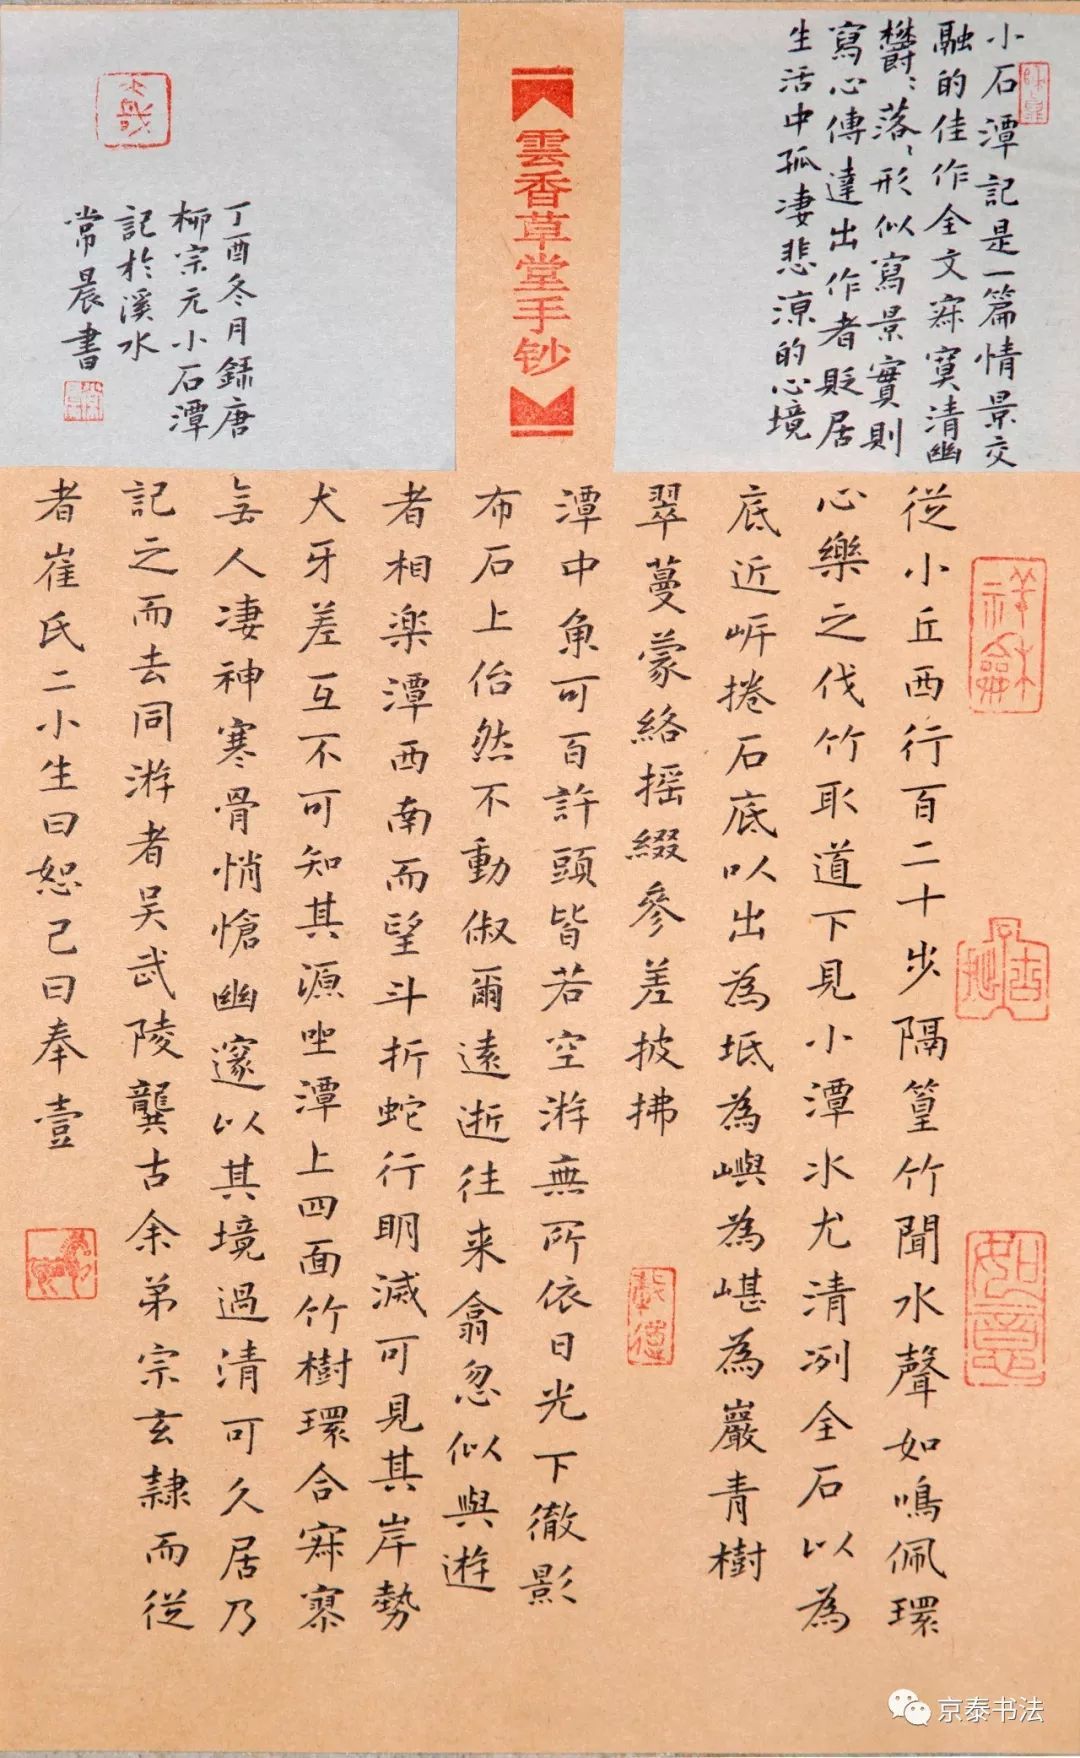 小石潭記是一篇情景交
融的佳作全文寂寞清幽
欝、落、形似寫景實則
寫心傳達出作者貶居
生活中孤凄悲涼的心境
雲香草堂手鈔
丁酉冬月錄唐
柳宗元小石潭
記於溪水
常晨書
從小丘西行百二十步隔篁竹聞水聲如鳴佩環
心樂之伐竹取道下見小潭水尤清冽全石以為
底近岸捲石底以出為坻為嶼為嵁為巖青樹
翠蔓蒙絡搖綴參差披拂
潭中魚可百許頭皆若空游無所依日光下徹影
布石上佁然不動俶爾遠逝往来翕忽似與遊
者相楽潭西南而望斗折蛇行明滅可見其岸勢
犬牙差互不可知其源坐潭上四面竹樹環合寂寥
無人凄神寒骨悄愴幽邃以其境過清可久居乃
記之而去同游者吴武陵龔古余弟宗玄隷而從
者崔氏二小生曰恕己曰奉壹
如意
京泰书法